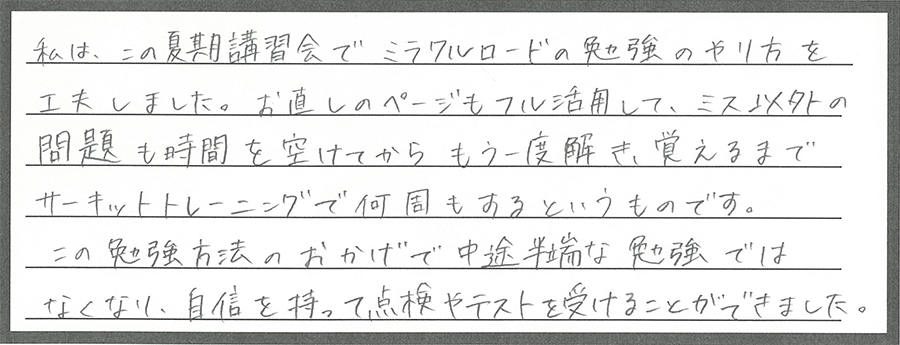 私は、この夏期講習会でミラクルロードの勉強のやり方を
工夫しました。お直しのページもフル活用して、ミス以外の
問題も時間を空けてからもう一度解き、覚えるまで
サーキットトレーニングで何周もするというものです。
この勉強方法のおかげで中途半端な勉強では
なくなり、自信を持って点検やテストを受けることができました。